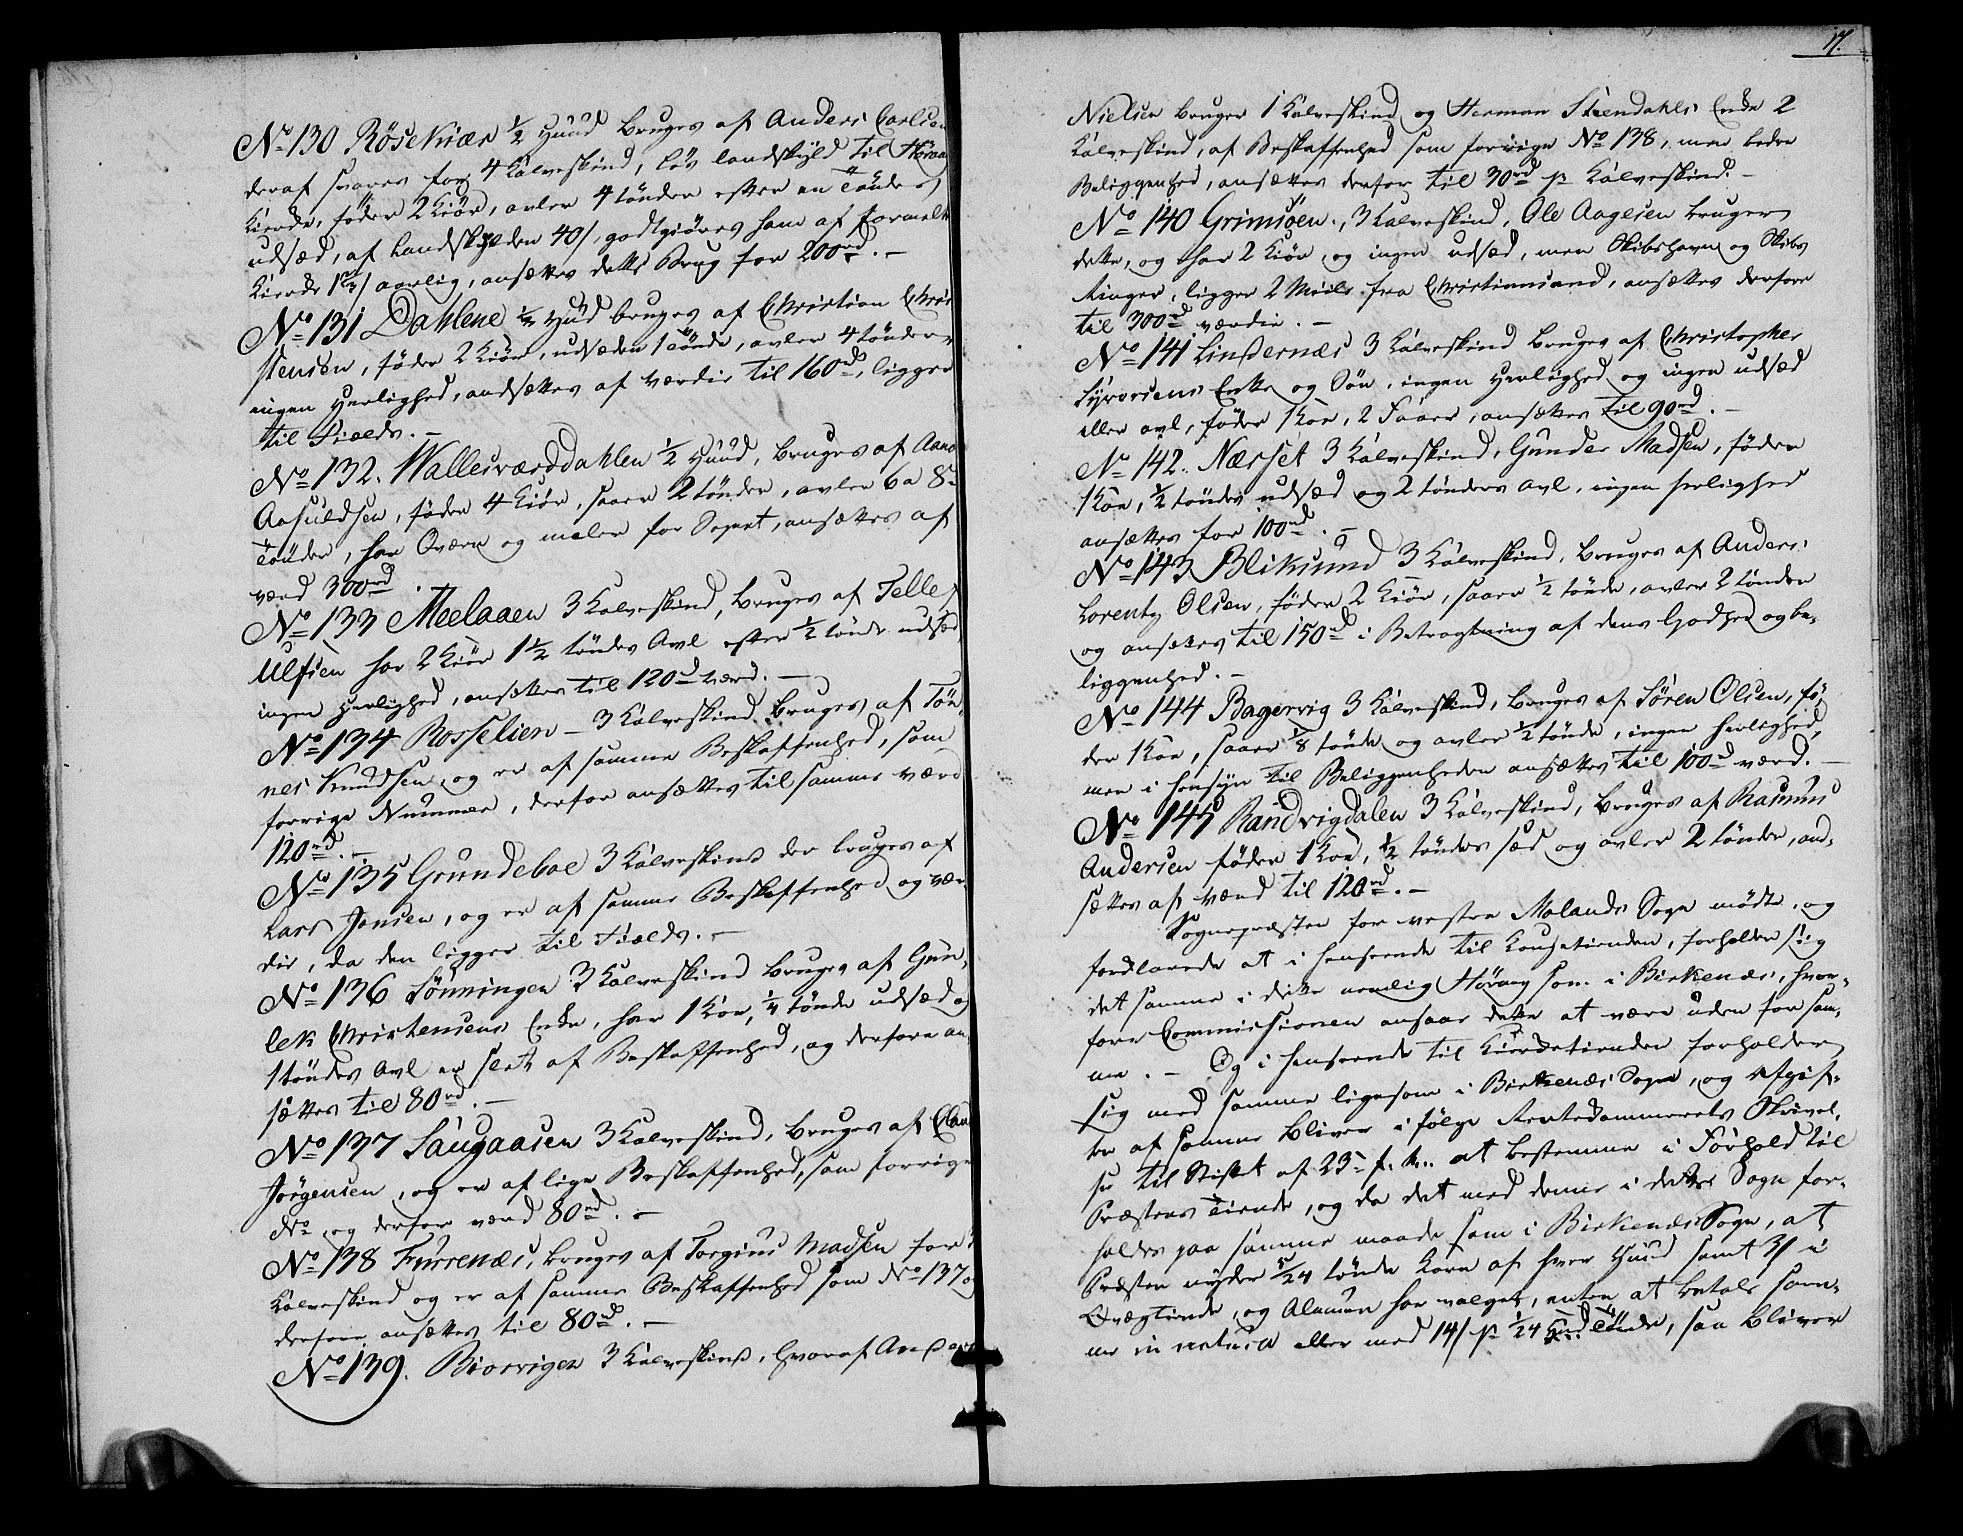 No 130 Röseknær 1/2 Huud bruges af Anders Carlsen
deraf svares for 4 Kalveskind, løs landskyld til Høvaa
Kierke, föder 2 Kiör, avler 4 tönder efter en Tönde
udsæd, af Landskylden 40 s, godtgiöres ham af formelte
Kierke aarlig, ansættes dette Brug for 200rd. –
No 131 Dahlene 1/2 Hud bruges af Christian Chris
stensen, föder 2 Kiör, udsæden 1 tönde, avler 4 tönder
ingen Herlighed, andsættes af Værdie til 160rd, ligger
til Fields. –
No 132. Wallesværddahlen 1/2 Huud, bruges af Aanon
Aasuldsen, föder 4 Kiör, saaer 2 tönder, avler 6 a 8
Tönder, har Qværn og maler for Sognet, ansættes af
værd 300rd.
No 133 Meelaaen 3 Kalveskind, bruges af Tellef
Ulfsen har 2 Kiör 1 1/2 töndes Avl efter 1/2 tönde udsæd
ingen Herlighed, ansættes til 120rd værd. –
No 134 Rosselien – 3 Kalveskind bruges af Tön
nes Knudsen, og er af samme Beskaffenhed, som
forrige Nummer, derfor ansættes til samme værd
120rd. –
No 135 Grundeboe 3 Kalveskind der bruges af
Lars Jensen, og er af samme Beskaffenhed og vær
die, da den ligger til Fields. –
No 136 Lönningen 3 Kalveskind bruges af Gun,
lek Christensens Enke, har 1 Koe, 1/4 tönde udsæd og
1 töndes Avl er slet af Beskaffenhed, og derfore an
sættes til 80rd. –
No 137 Laugaasen 3 Kalveskind, bruges af
Jörgensen, og er af lige Beskaffenhed, som forrige
No, og derfor værd 80rd. –
No 138 Furrenæs, bruges af Torgius Madsen for 3
Kalveskind og er af samme Beskaffenhed som No 137 og
derfore ansættes til 80rd. –
No 139. Biorvigen 3 Kalveskind, hvoraf Anders
17.
Nielsen bruger 1 Kalveskind og Herman Steendahls Enke 2
Kalveskind, af Beskaffenhed som forrige No 138, men bedre
Beliggenhed, ansættes derfor til 30rd pr Kalveskind. –
No 140 Grimsöen, 3 Kalveskind, Ole Aagesen bruger
dette, og har 2 Kiör, og ingen udsæd, men Skibshavn og Skibs
Ringer, ligger 2 Miile fra Christiansand, ansættes derfore
til 300rd værdie. –
No 141 Lindernæs 3 Kalveskind bruges af Christopher
Syvorsens Enke og Sön, ingen Herlighed og ingen udsæd
eller avl, föder 1 Koe, 2 Faaer, ansættes til 90rd. –
No 142. Næsset 3 Kalveskind, Gunder Madsen, föder
1 Koe, 1/2 töndes udsæd og 2 tönders avl, ingen herlighed
ansættes for 100rd. –
No 143 Bliksund 3 Kalveskind, bruges af Anders
Lorentz Olsen, föder 2 Kiör, saaer 1/2 tönde, avler 2 tönder
og ansættes til 150rd i Betragtning af dens Godhed og be,
liggenhed. –
No 144 Bagervig 3 Kalveskind, bruges af Sören Olsen, fö,
der 1 Koe, saaer 1/8 tönde og avler 1/2 tönde, ingen herlighed,
men i hensyn til Beliggenheden ansættes til 100rd værd. –
No 145 Randvigdalen 3 Kalveskind, bruges af Rasmus
Andersen föder 1 Koe, 1/2 töndes sæd og avler 2 tönder, and,
sættes af værd til 120rd. –
Sognepræsten for vestre Molands Sogn mödte, og
forklarede at i henseende til Kongetienden, forholder sig
det samme i dette nemlig Høvaag som i Birkenæs, hvor,
fore Commissionen ansaae dette at være uden for sam,
me. – Og i henseende til Kierketienden forholder
sig med samme ligesom i Birkenæs Sogn, og Afgif,
ten af samme bliver i fölge Rentekammerets Skrivel,
se til Stiftet af 23 f. M. at bestemme i Forhold til
Præstens Tiende, og da det med denne i dette Sogn for,
holdes paa samme maade som i Birkenæs Sogn, at
Præsten nyder 5/24 tönde Korn af hver Huud samt 3 s i
Qvægtiende, og Almuen har valget, enten at betale sam,
me in natura eller med 14 s pr 1/24 Tönde, saa bliver